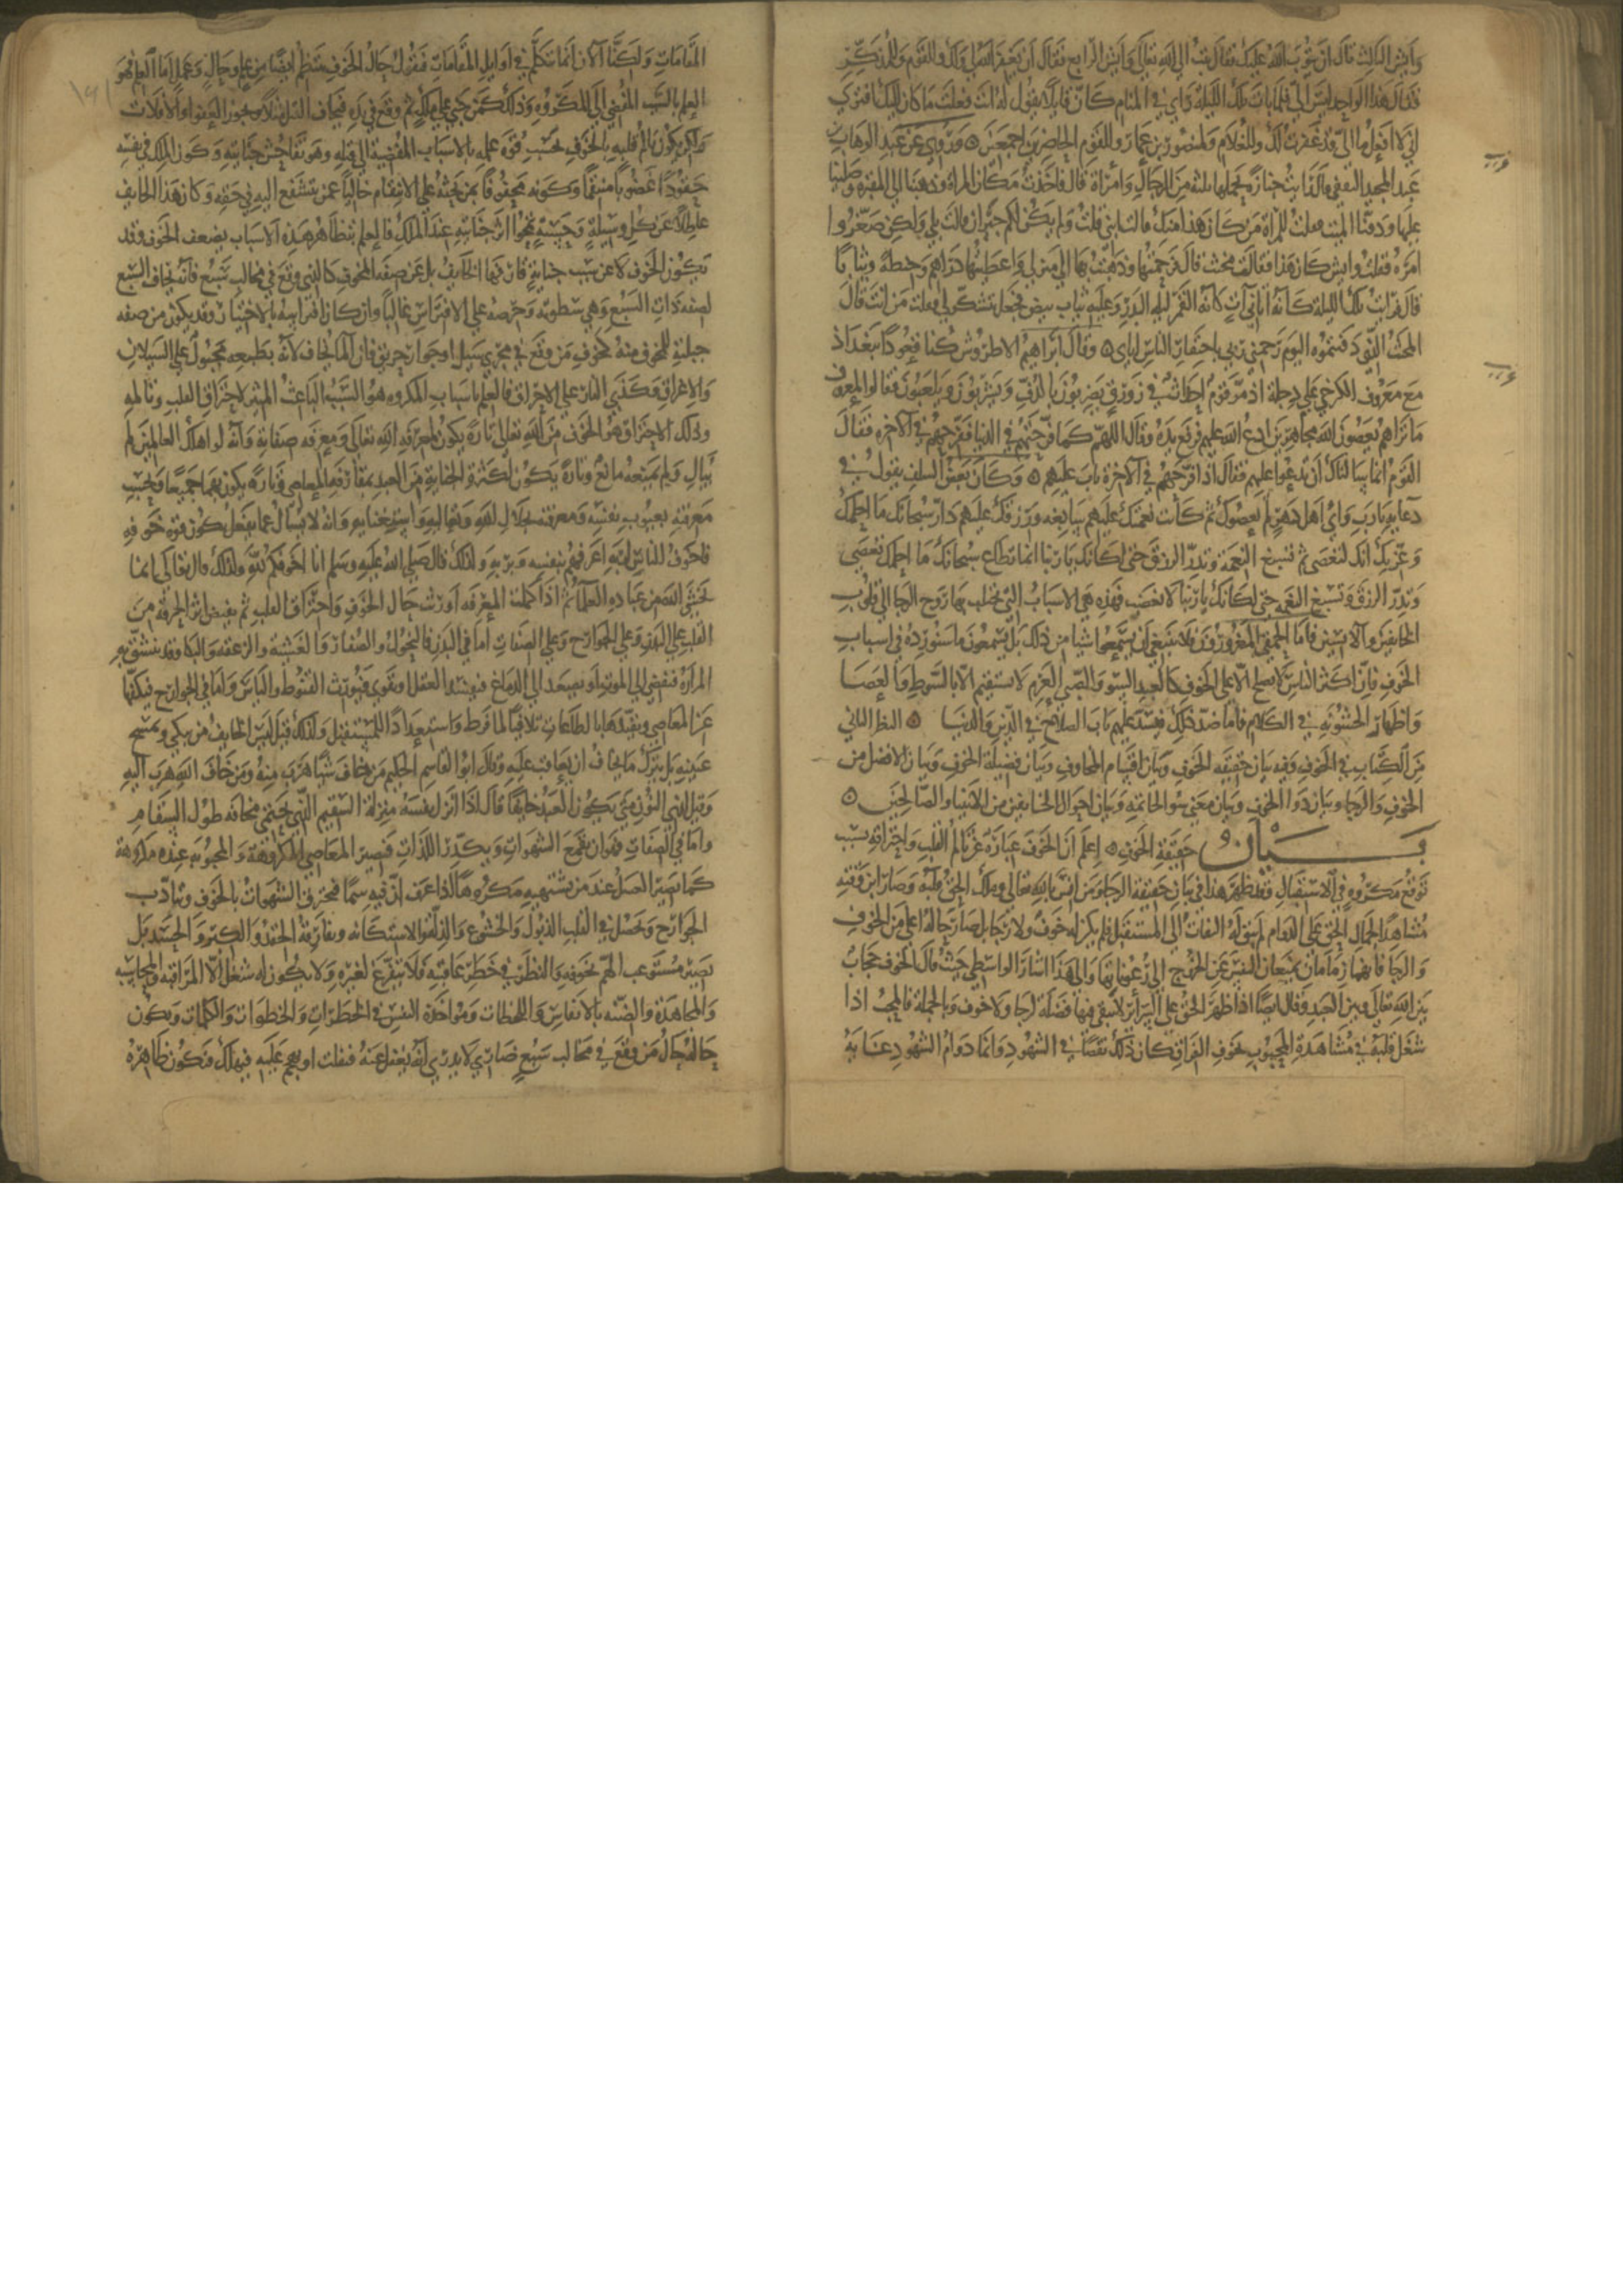 وايش الثالث قال ان يتوب الله عليك فقال تبت الي الله تعالي وايش الرابع فقال ان يغفر الله لي ولك وللقوم وللمذكر
قال هذا الواحد ليس الي فلما بات تلك الليلة راي في المنام كان قايلا يقول له انت فعلت ما كان اليك افترى
اني لا افعل ما الي قد غفرت لك وللغلام ولمنصور بن عمار وللقوم الحاضرين اجمعين ه وروي عن عبد الوهاب بن
عبد المجيد الثقفي قال رايت جنازة يحملها ثلثة من الرجال وامراة قال فاخذت مكان المراة وذهبنا الي المقبرة وصلينا
عليها ودفنا الميت فقلت للمراة من كان هذا منك قالت ابني قلت ولم يكن لكم جيران قالت بلي ولكن صغروا
امره فقلت وايش كان هذا فقالت مخنث قال فرحمتها وذهبت بها الي منزلي واعطيتها دراهم وحنطة وثيابا
قال فرايت تلك الليلة كانه اتاني آت كانه القمر ليلة البدر وعليه ثياب بيض فجعل يتشكر لي فقلت من انت قال
المخنث الذي دفنتموه اليوم رحمني ربي باحتقار الناس اياي ه وقال ابراهيم الاطروش كنا قعودا ببغداذ
مع معروف الكرخي علي دجلة اذ مر قوم احداث في زورق يضربون بالدف ويشربون ويلعبون فقالوا لمعروف
ما تراهم يعصون الله مجاهرين ادع الله عليهم فرفع يده وقال اللهم كما فرحتهم في الدنيا ففرحهم في الآخرة فقال
القوم انما سالناك ان تدعوا عليهم فقال اذا فرحهم في الآخرة تاب عليهم ه وكان بعض السلف يقول في
دعايه يا رب واي اهل دهر لم يعصوك ثم كانت نعمتك عليهم سابغة ورزقك عليهم دار سبحانك ما احلمك
وعزتك انك لتعصى ثم تسبغ النعمة وتدر الرزق حتى لكانك يا ربنا انما تطاع سبحانك ما احلمك تعصى
وتدر الرزق وتسبغ النعم حتى لكانك يا ربنا لا تغضب فهذه هي الاسباب التي تجلب بها روح الرجا الي قلوب
الخايفين والآيسين فاما الحمقى المغرورون فلا ينبغي ان يسمعوا شيا من ذلك بل يسمعون ما سنورده في اسباب
الخوف فان اكثر الناس لا يصلح الا علي الخوف كالعبد السو والصبي العرم لا يستقيم الا بالسوط والعصا
واظهار الخشونة في الكلام فاما ضد ذلك فيسد عليهم باب الصلاح في الدين والدنيا ه النظر الثاني
من الكتاب في الخوف وفيه بيان حقيقة الخوف وبيان اقسام المخاوف وبيان فضيلة الخوف وبيان الافضل من
الخوف والرجا وبيان دوا الخوف وبيان معنى سو الخاتمة وبيان احوال الخايفين من الانبيا والصالحين ه
بيان حقيقة الخوف ه اعلم ان الخوف عبارة عن تالم القلب واحتراقه بسبب
توقع مكروه في الاستقبال وقد ظهر هذا في بيان حقيقة الرجا ومن انس بالله تعالي وملك الحق قلبه وصار ابن وقته
مشاهدا لجمال الحق علي الدوام لم يبق له التفات الي المستقبل فلم يكن له خوف ولا رجا بل صار حاله اعلي من الخوف
والرجا فانهما زمامان يمنعان النفس عن الخروج الي رعوناتها والى هذا اشار الواسطي حيث قال الخوف حجاب
بين الله تعالي وبين العبد وقال ايضا اذا ظهر الحق علي السرائر لا يبقى فيها فضلة لرجا ولا خوف وبالجملة فالمحب اذا
شغل قلبه في مشاهدة المحبوب بخوف الفراق كان ذلك نقصا في الشهود وانما دوام الشهود غاية
المقامات ولكنا الآن انما نتكلم في اوايل المقامات فنقول حال الخوف ينتظم ايضا من علم وحال وعمل اما العلم فهو
العلم بالسبب المفضي الي المكروه وذلك كمن جنى علي ملك ثم وقع في يده فيخاف القتل مثلا ويجوز العفو او الافلات
ولكن يكون تالم قلبه بالخوف بحسب قوة علمه بالاسباب المفضية الي قتله وهو تفاحش جنايته وكون الملك في نفسه
حقودا غضوبا منتقما وكونه محفوفا بمن يحثه علي الانتقام خاليا عمن يتشفع اليه في حقه وكان هذا الخايف
عاطلا عن كل وسيلة وحسنة تمحوا اثر جنايته عند الملك فالعلم بتظاهر هذه الاسباب يضعف الخوف وقد
يكون الخوف لا عن سبب جناية قارفها الخايف بل عن صفة المخوف كالذي وقع في مخالب سبع فانه يخاف السبع
لصفة ذات السبع وهي سطوته وحرصه علي الافتراس غالبا وان كان افتراسه بالاختيار وقد يكون من صفة
جبلية للمخوف منه كخوف من وقع في مجرى سيل او جوار حريق فان الما يخاف لانه بطبعه مجبول علي السيلان
والاغراق وكذي النار علي الاحراق فالعلم باسباب المكروه هو السبب الباعث المثير لاحتراق القلب وتالمه
وذلك الاحتراق هو الخوف من الله تعالي تارة يكون لمعرفة الله تعالي ومعرفة صفاته وانه لو اهلك العالمين لم
يبال ولم يمنعه مانع وتارة يكون لكثرة الجناية من العبد بمقارفة المعاصي وتارة يكون بهما جميعا وبحسب
معرفته بعيوب نفسه ومعرفته بجلال الله وتعاليه واستغنايه وانه لا يسال عما يفعل يكون قوة خوفه
فاخوف الناس لربه اعرفهم بنفسه وبربه ولذلك قال صلي الله عليه وسلم انا اخوفكم لله ولذلك قال تعالى انما
يخشى الله من عباده العلمآ ثم اذا كملت المعرفة اورثت حال الخوف واحتراق القلب ثم يفيض اثر الحرقة من
القلب علي البدن وعلي الجوارح وعلي الصفات اما في البدن فالنحول والصفار والغشية والزعقة والبكا وقد ينشق به
المرارة فيفضي الي الموت او يصعد الي الدماغ فيفسد العقل او يقوي فيورث القنوط والياس واما في الجوارح فبكفها
عن المعاصي وتقييدها بالطاعات تلافيا لما فرط واستعدادا للمستقبل ولذلك قيل ليس الخايف من يبكي ويمسح
عينيه بل من يترك ما يخاف ان يعاقب عليه وقال ابو القاسم الحكيم من خاف شيا هرب منه ومن خاف الله هرب اليه
وقيل لذي النون متى يكون العبد خايفا قال اذا انزل نفسه منزلة السقيم الذي يحتمي مخافة طول السقام
واما في الصفات فهو ان يقمع الشهوات ويكدر اللذات فتصير المعاصي المكروهة والمحبوبة عنده مكروهة
كما يصير العسل عند من يشتهيه مكروها اذا عرف ان فيه سما فتحترق الشهوات بالخوف وتتادب
الجوارح ويحصل في القلب الذبول والخشوع والذلة والاستكانة ويفارقة الحقد والكبر والحسد بل
يصير مستوعب الهم بخوفه والنظر في خطر عاقبته فلا يتفرغ لغيره ولا يكون له شغل الا المراقبة والمحاسبة
والمجاهدة والضنه بالانفاس واللحظات ومواخذة النفس في الخطرات والخطوات والكلمات ويكون
حاله حال من وقع في مخالب سبع ضاري لا يدري انه يغفل عنه فيفلت او يهجم عليه فيهلك فتكون ظاهره